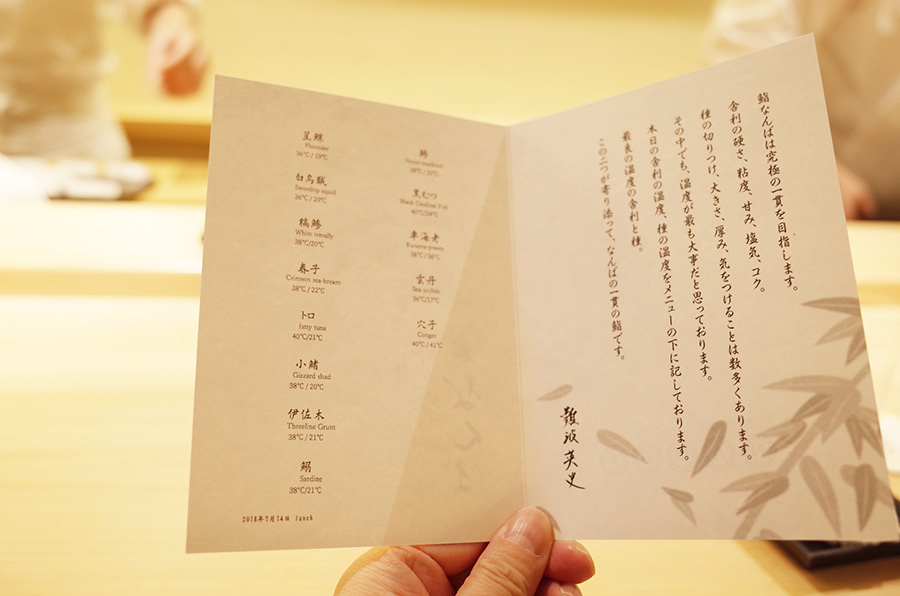 星鰈
Flounder
36℃ / 19℃
白烏賊
Swordtip squid
36℃ / 20℃
縞鯵
White trevally
38℃/20℃
春子
Crimson sea-bream
38℃ / 22℃
トロ
fatty tuna
40℃/21℃
小鰭
Gizzard shad
38℃ / 20℃
伊佐木
Threeline Grunt
38℃ / 21℃
鰯
Sardine
38℃/21℃
2018年7月14日 lunch
鯵
Horse mackerel
38℃ / 20℃
黒むつ
Black Cardinal Fish
40℃/24℃
車海老
Kuruma prawn
38℃ / 36℃
雲丹
Sea urchin
36℃/17℃
穴子
Conger
40℃ / 41℃
鮨なんばは究極の一貫を目指します。
舎利の硬さ、粘度、甘み、塩気、コク。
種の切りつけ、大きさ、厚み、気をつけることは数多くあります。
その中でも、温度が最も大事だと思っております。
本日の舎利の温度、種の温度をメニューの下に記しております。
最良の温度の舎利と種。
この二つが寄り添って、なんばの一貫の鮨です。
難波英史